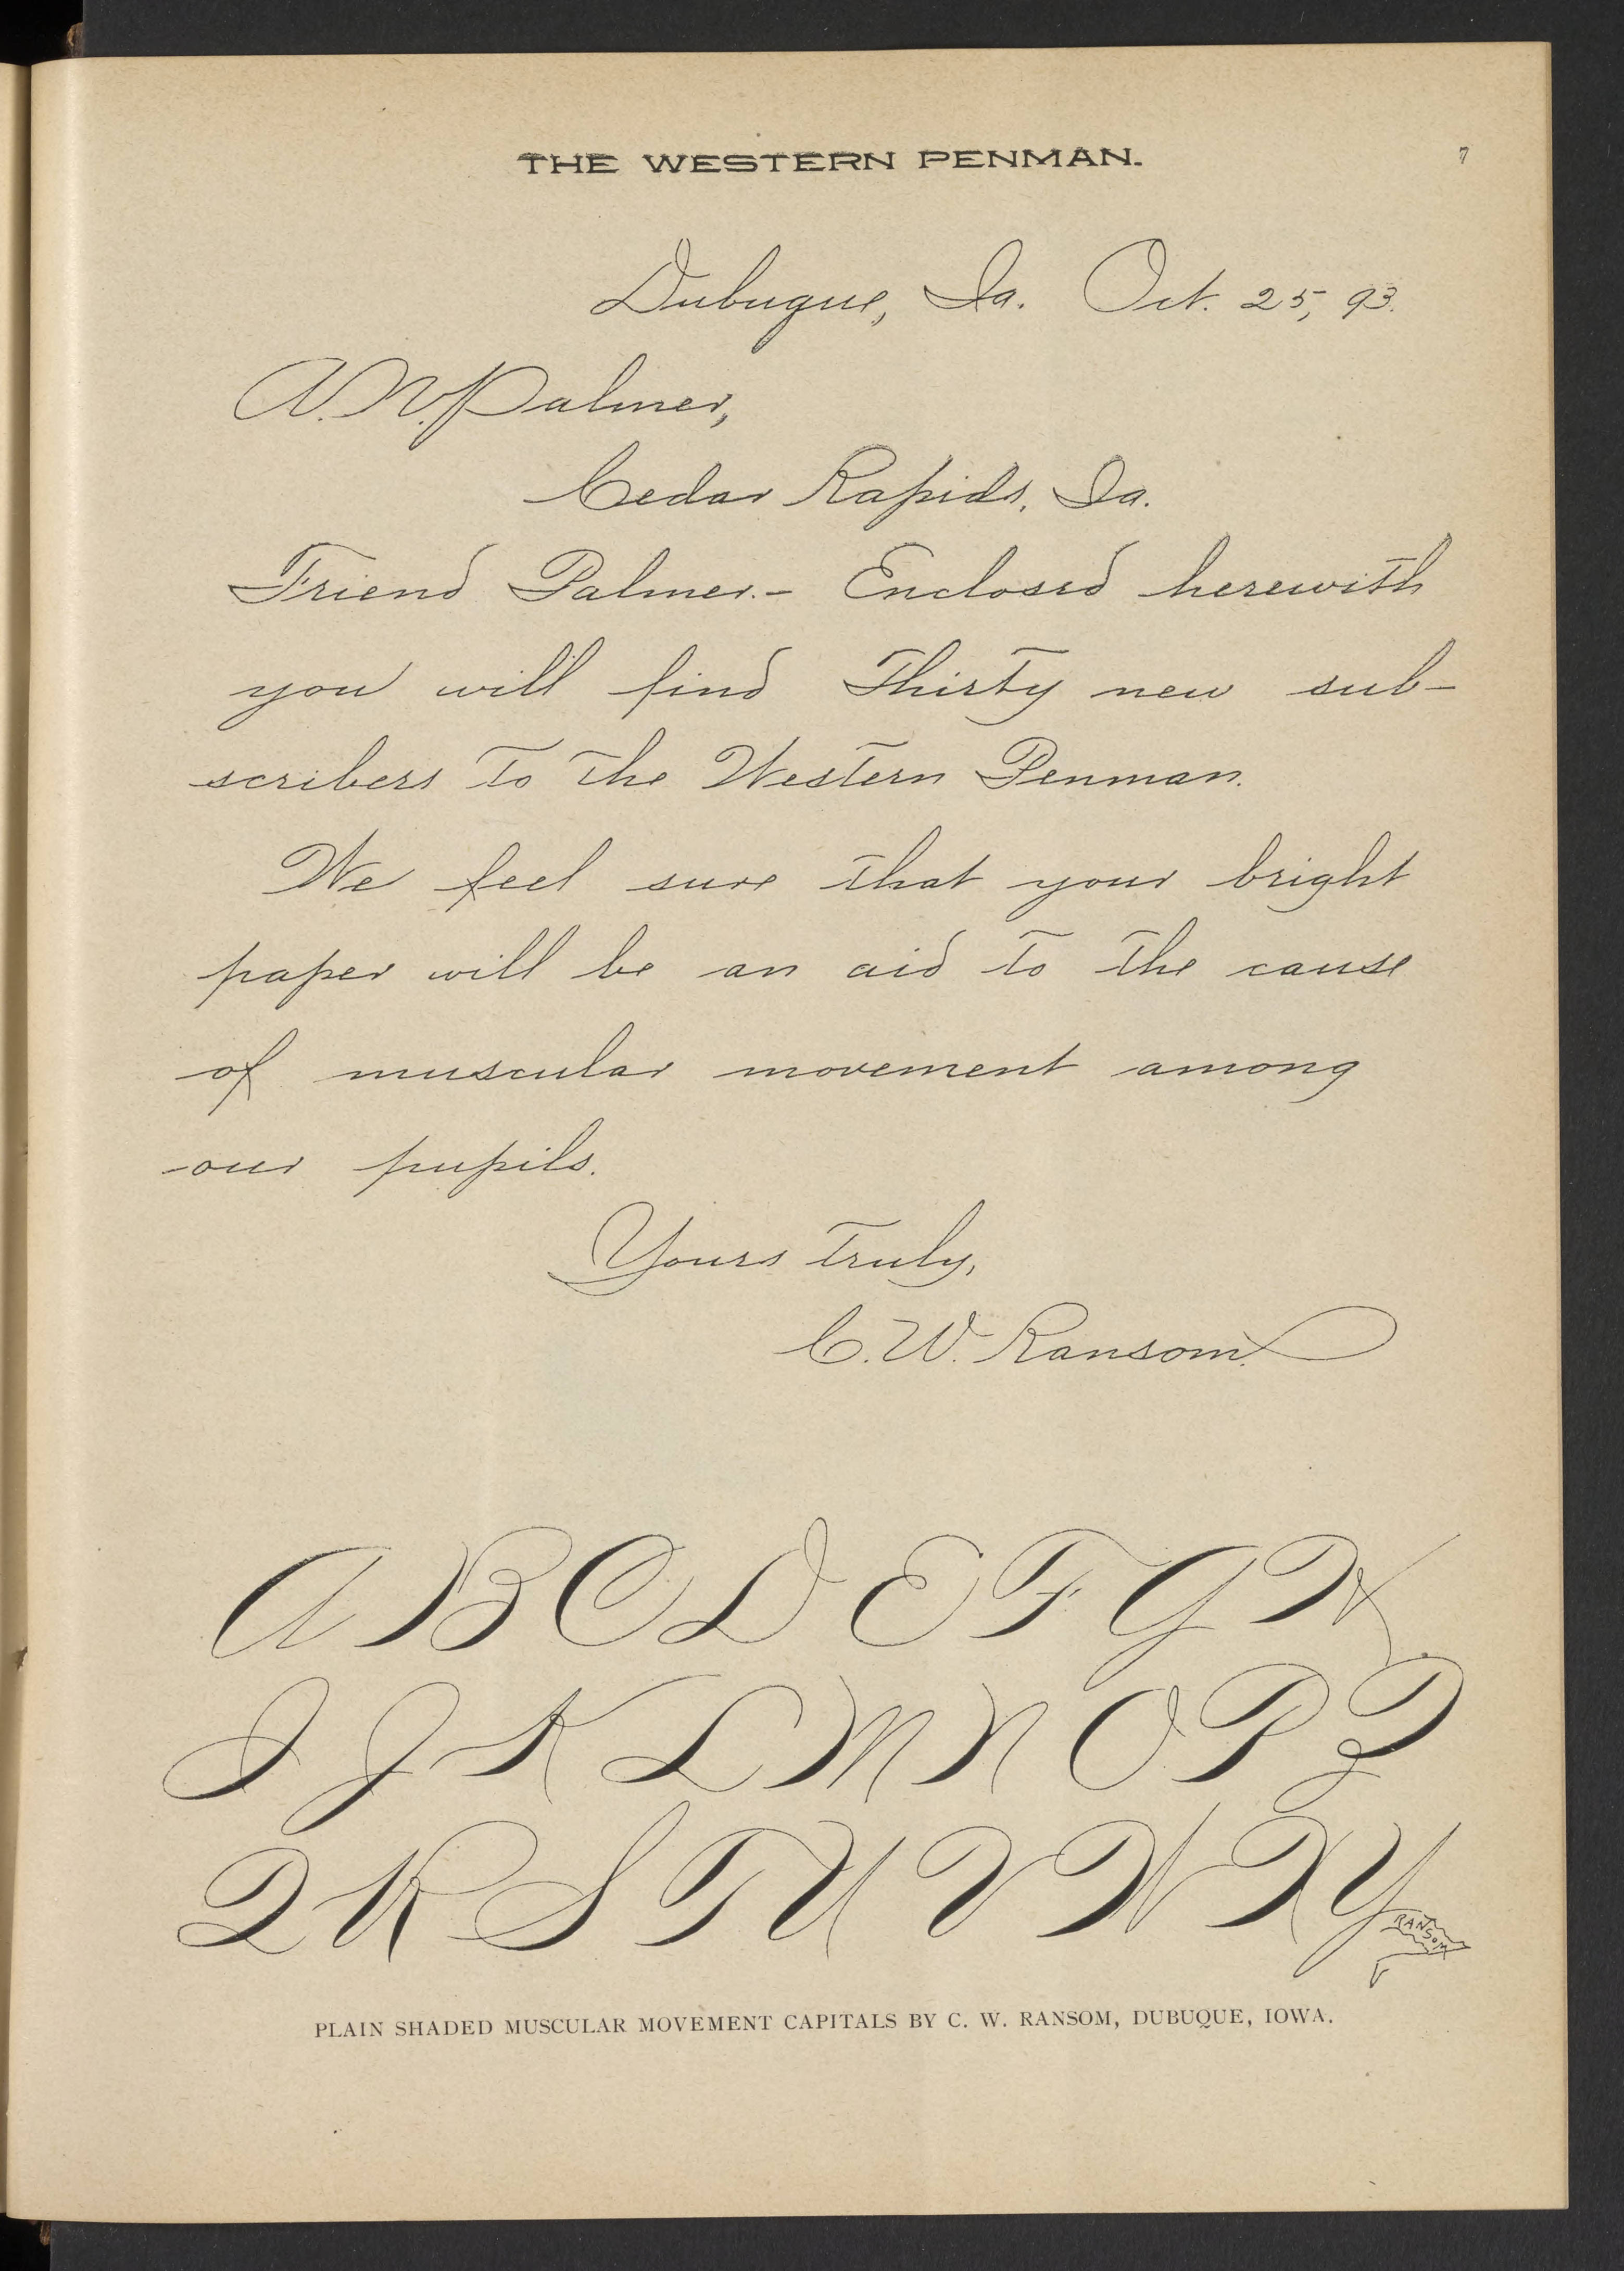 THE WESTERN PENMAN.
7
Dubuque, Ia. Oct. 25, 93.
A. N. Palmer,
Cedar Rapids, Ia.
Friend Palmer.- Enclosed herewith
you will find Thirty new sub-
scribers to the Western Penman.
We feel sure that your bright
paper will be an aid to the cause
of muscular movement among
our pupils.
Yours truly,
C. W. Ransom.
A B C D E F G H
I J K L M N O P Z
Q R S T U V W X Y
RANSOM
PLAIN SHADED MUSCULAR MOVEMENT CAPITALS BY C. W. RANSOM, DUBUQUE, IOWA.